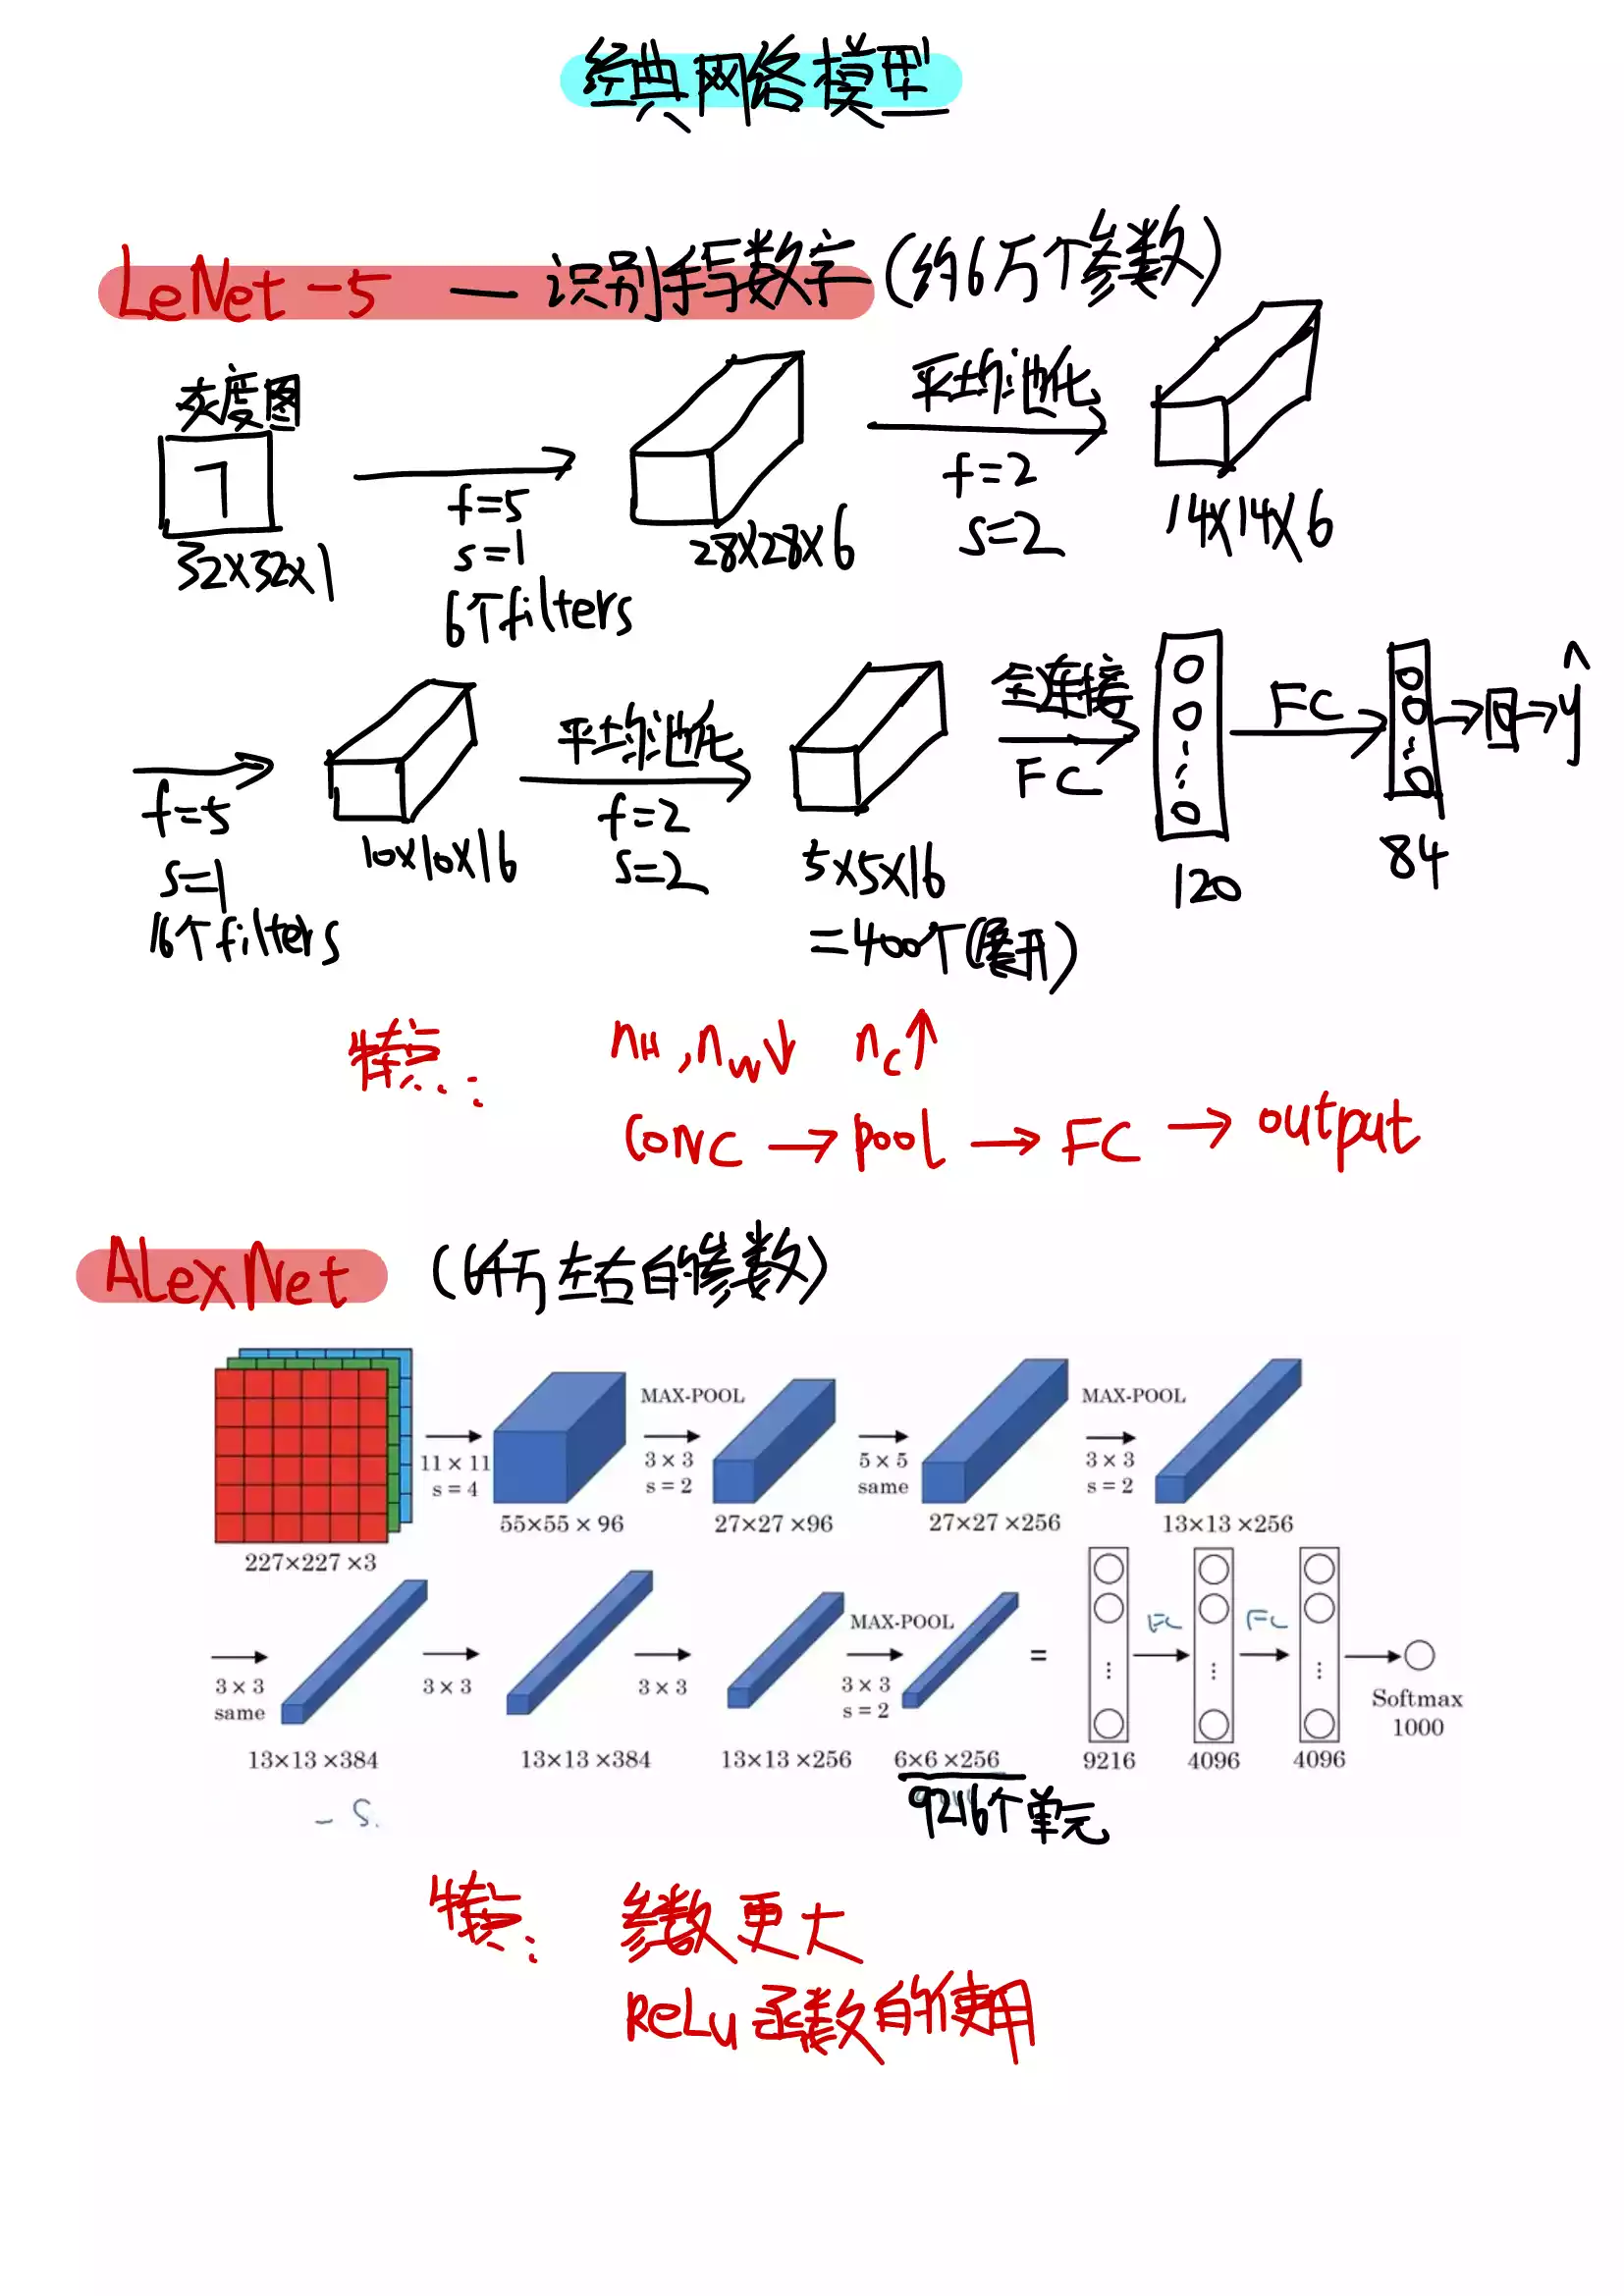 经典网络模型
LeNet-5 — 识别手写数字 (约6万个参数)
灰度图
7
32×32×1
f=5
s=1
6个filters
28×28×6
平均池化
f=2
s=2
14×14×6
f=5
s=1
16个filters
10×10×16
平均池化
f=2
s=2
5×5×16
=400个(展开)
全连接
FC
120
FC
84
ŷ
特点:
nH, nW↓ nC↑
conc → pool → FC → output
ALexNet (6千万左右的参数)
227×227×3
11 × 11
s = 4
55×55 × 96
MAX-POOL
3 × 3
s = 2
27×27 ×96
5 × 5
same
27×27 ×256
MAX-POOL
3 × 3
s = 2
13×13 ×256
3 × 3
same
13×13 ×384
3 × 3
13×13 ×384
3 × 3
13×13 ×256
MAX-POOL
3 × 3
s = 2
6×6 ×256
9216个单元
=
9216
FC
4096
FC
4096
Softmax
1000
特点:
参数更大
ReLu函数的使用